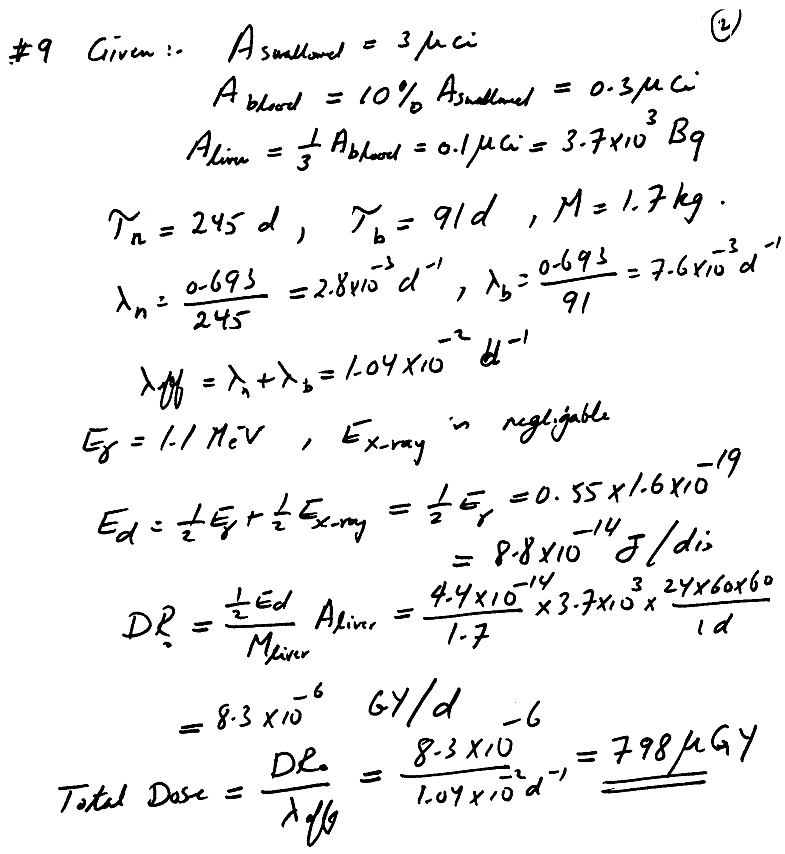 ②
#9 Given :- A swallowed = 3 μci
A blood = 10% A swallowed = 0.3 μ Ci
A liver = 1/3 A blood = 0.1 μ Ci = 3.7 x 10^3 Bq
T_n = 245 d , T_b = 91 d , M = 1.7 kg .
λ_n = 0.693/245 = 2.8x10^-3 d^-1 , λ_b = 0.693/91 = 7.6x10^-3 d^-1
λ_eff = λ_n + λ_b = 1.04 x 10^-2 d^-1
E_γ = 1.1 MeV , E_x-ray is negligable
E_d = 1/2 E_γ + 1/2 E_x-ray = 1/2 E_γ = 0.55 x 1.6 x 10^-19
= 8.8 x 10^-14 J/dis
DR = (1/2 Ed)/M_liver A_liver = (4.4 x 10^-14)/1.7 x 3.7 x 10^3 x (24x60x60)/1 d
= 8.3 x 10^-6 GY/d
Total Dose = DR₀/λ_eff = (8.3 x 10^-6)/(1.04 x 10^-2 d^-1) = 798 μGY